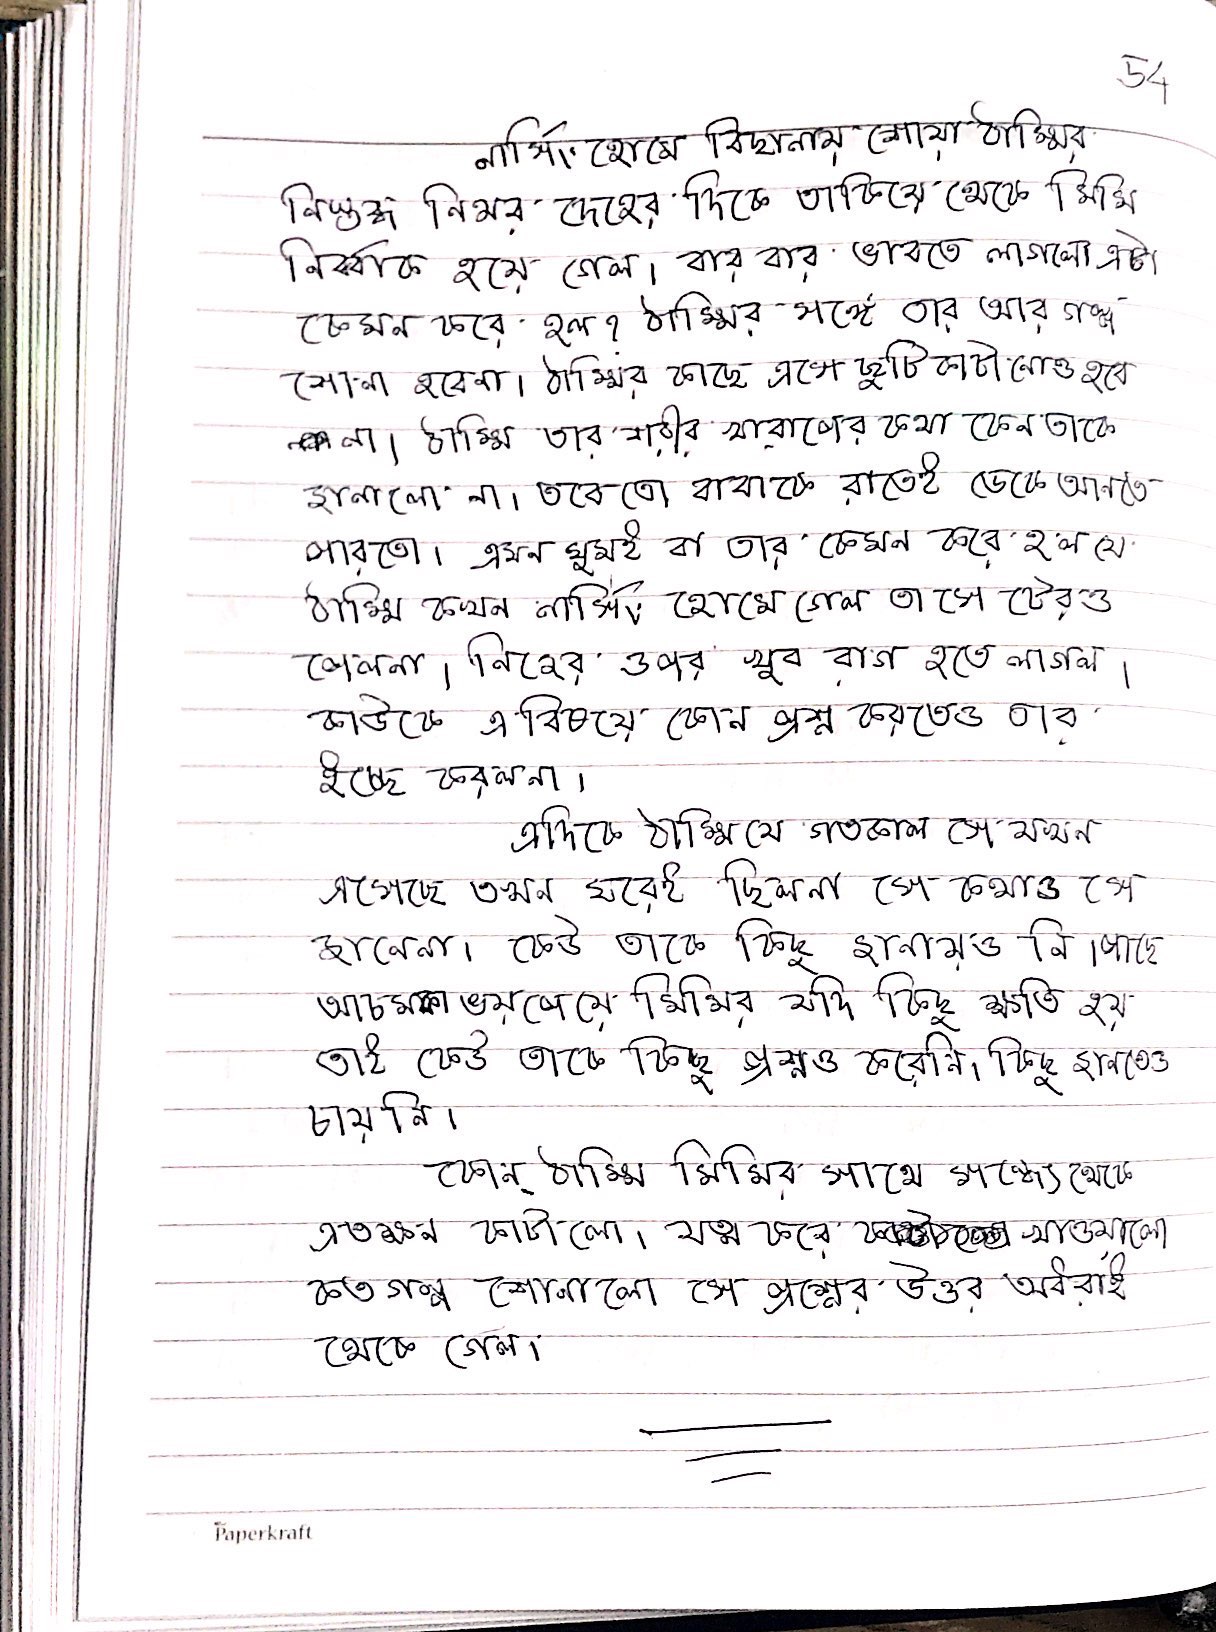 54
নার্সিং হোমে বিছানায় শোয়া ঠাম্মির
নিস্তব্ধ নিথর দেহের দিকে তাকিয়ে থেকে মিমি
নির্ব্বাক হয়ে গেল। বার বার ভাবতে লাগলো এটা
কেমন করে হল? ঠাম্মির সঙ্গে তার আর গল্প
শোনা হবেনা। ঠাম্মির কাছে এসে ছুটি কাটানোও হবে
না। ঠাম্মি তার শরীর খারাপের কথা কেন তাকে
জানালো না। তবেতো বাবাকে রাতেই ডেকে আনতে
পারতো। এমন ঘুমই বা তার কেমন করে হল যে
ঠাম্মি কখন নার্সিং হোমে গেল তা সে টেরও
পেলনা। নিজের ওপর খুব রাগ হতে লাগল।
কাউকে এ বিষয়ে কোন প্রশ্ন করতেও তার
ইচ্ছে করলনা।
এদিকে ঠাম্মি যে গতকাল সে যখন
এসেছে তখন ঘরেই ছিলনা সে কথাও সে
জানেনা। কেউ তাকে কিছু জানায়ও নি। পাছে
আচমকা ভয়পেয়ে মিমির যদি কিছু ক্ষতি হয়
তাই কেউ তাকে কিছু প্রশ্নও করেনি। কিছু জানতেও
চায়নি।
কোন্ ঠাম্মি মিমির সাথে সন্ধ্যে থেকে
এতক্ষন কাটালো। যত্ন করে খাওয়ালো
কত গল্প শোনালো সে প্রশ্নের উত্তর অধরাই
থেকে গেল।
Paperkraft